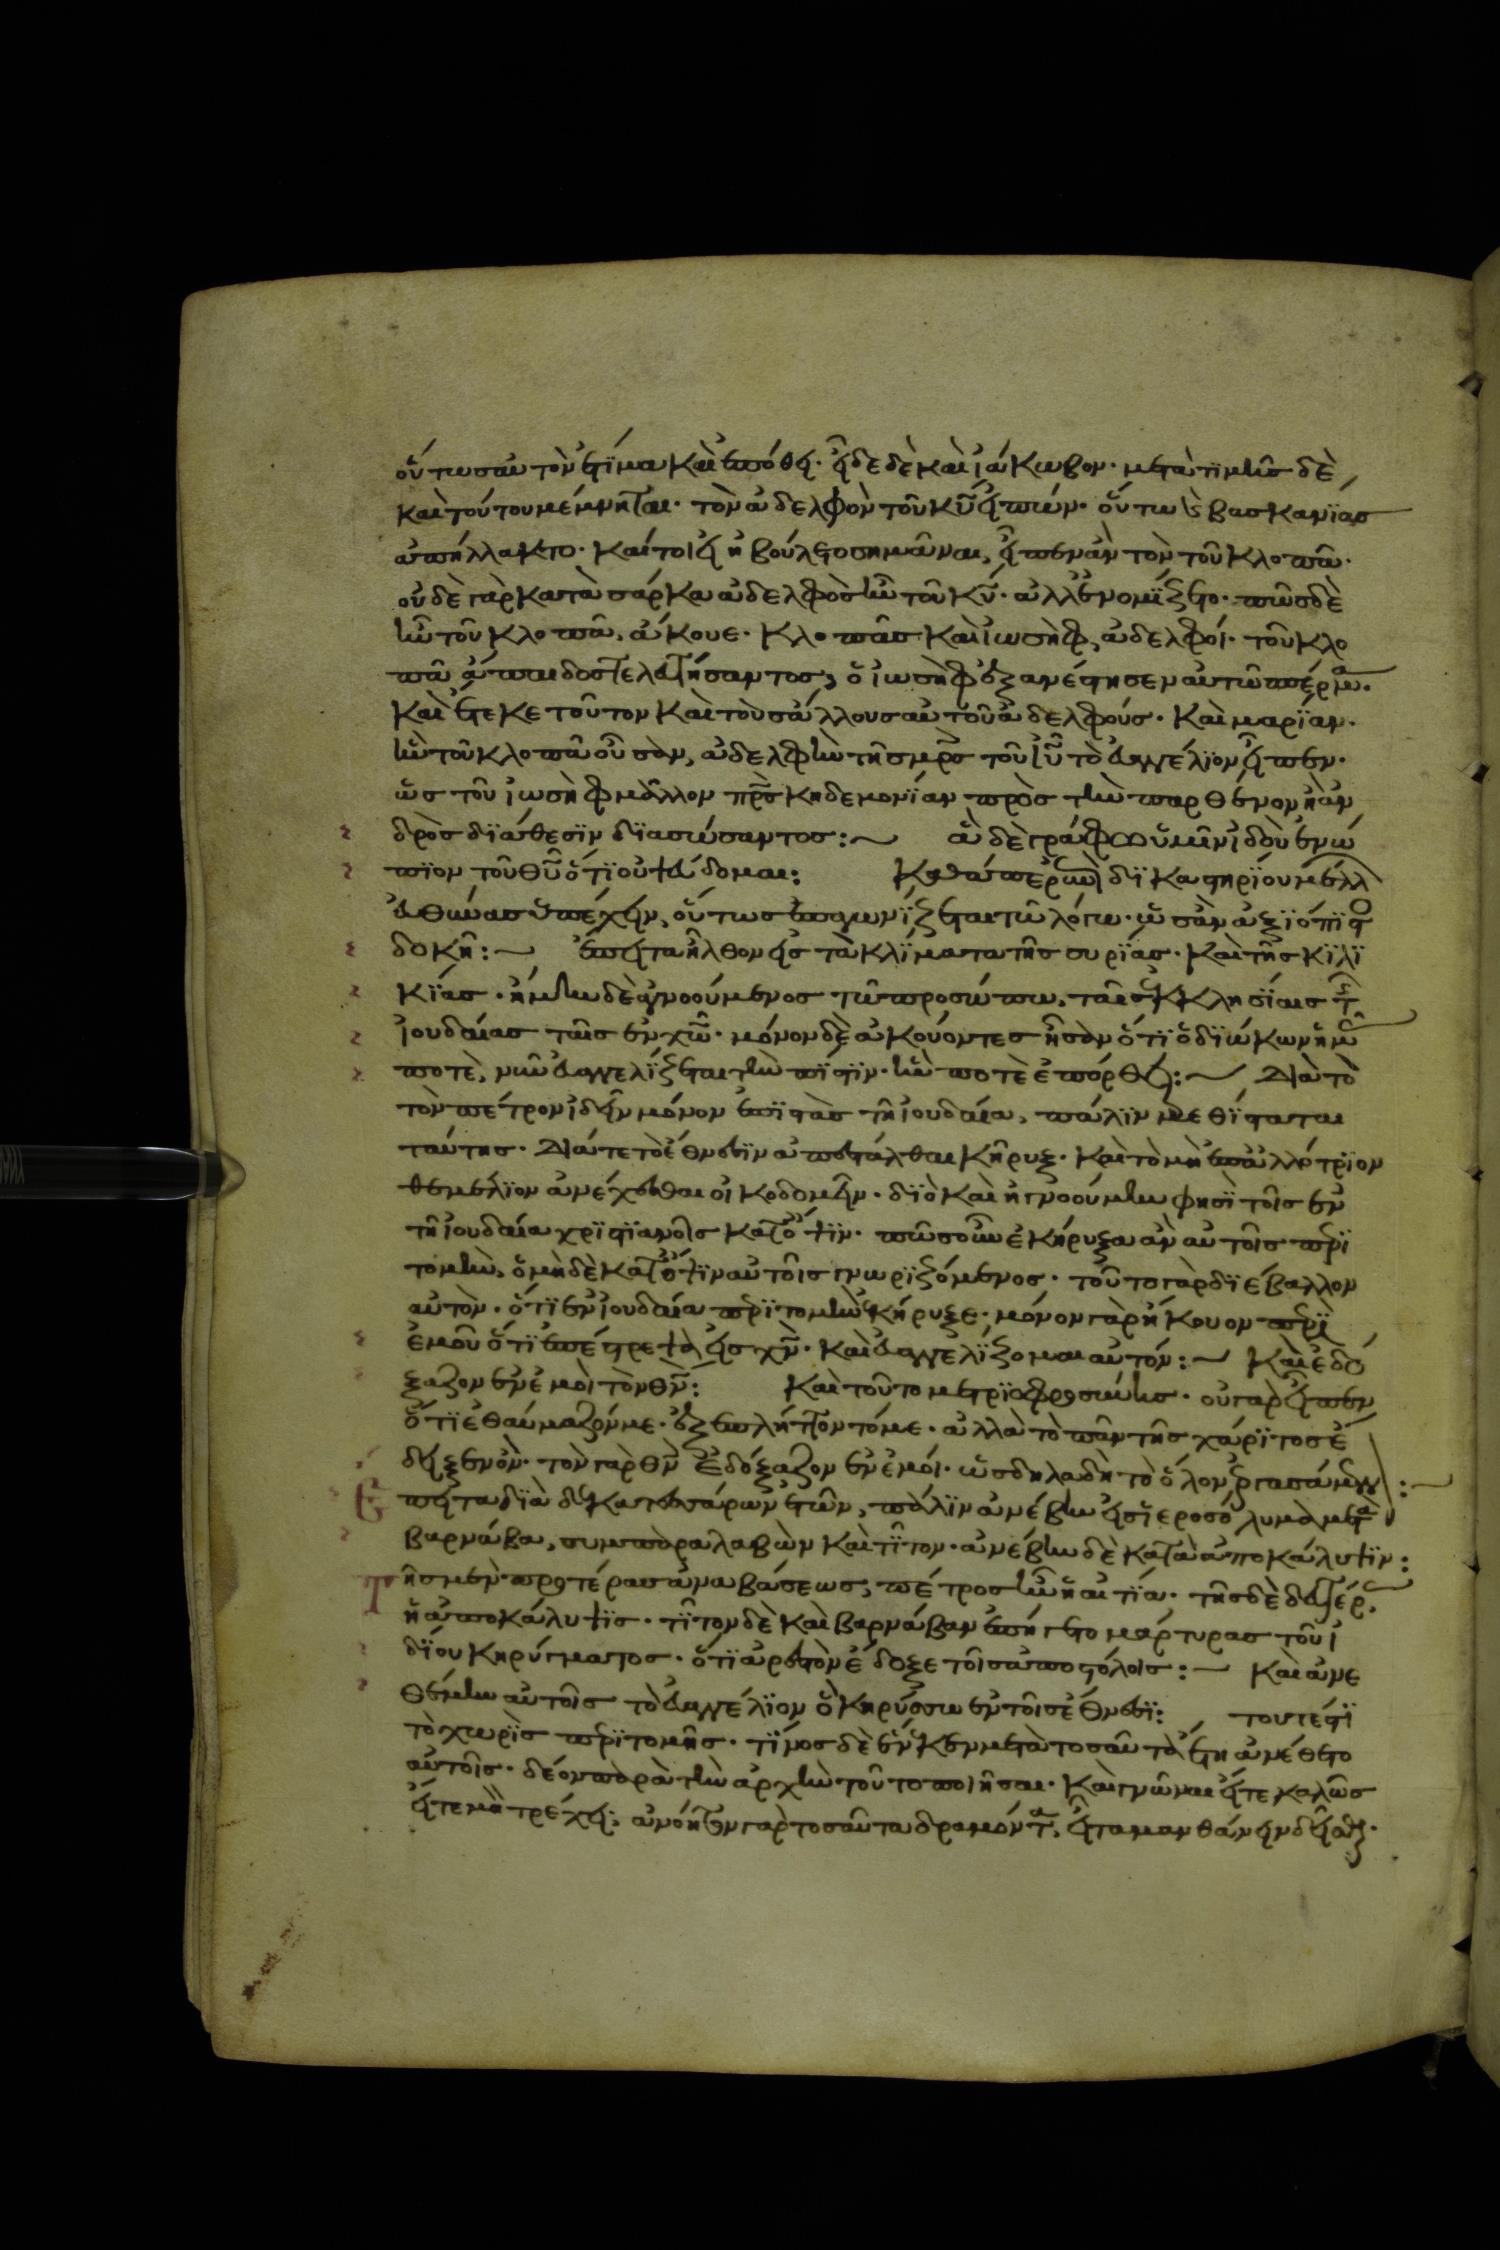 οὕτως αὐτὸν ἐτίμα καὶ ἐπόθει· εἶδε δὲ καὶ ἰάκωβον· μετὰ τιμῆς δὲ
καὶ τούτου μέμνηται· τὸν ἀδελφὸν τοῦ κυ εἰπών· οὕτως βασκανίας
ἀπήλλακτο· καίτοι εἰ ἠβούλετο σημᾶναι, εἶπεν ἂν τὸν τοῦ κλοπᾶ·
οὐδὲ γὰρ κατὰ σάρκα ἀδελφὸς ἦν τοῦ κυ· ἀλλ' ἐνομίζετο· πῶς δὲ
ἦν τοῦ κλοπᾶ, ἄκουε· κλοπᾶς καὶ ἰωσὴφ, ἀδελφοί· τοῦ κλο
πᾶ ἄπαιδος τελευτήσαντος, ὁ ἰωσὴφ ἐξανέστησεν αὐτῶ σπέρμα·
καὶ ἔτεκε τοῦτον καὶ τοὺς ἄλλους αὐτοῦ ἀδελφούς· καὶ μαρίαν·
ἣν τοῦ κλοπᾶ οὖσαν, ἀδελφὴν τῆς μρς τοῦ ιυ τὸ εὐαγγέλιον εἶπεν·
ὡς τοῦ ἰωσὴφ μᾶλλον πρὸς κηδεμονίαν πρὸς τὴν παρθένον ἢ ἀν
δρὸς διάθεσιν διασώσαντος:~ ἃ δὲ γράφω ὑμῖν ἰδοὺ ἐνώ
πιον τοῦ θυ ὅτι οὐ ψεύδομαι: καθάπερ ἐν δικαστηρίου μέλλ
εὐθύνας ὑπέχειν, οὕτως ἐπαγωνίζεται τῶ λόγω· ὡς ἂν ἀξιόπιστο
δοκῆ:~ ἔπειτα ἦλθον εἰς τὰ κλίματα τῆς συρίας· καὶ τῆς κιλι
κίας· ἤμην δὲ ἀγνοούμενος τῶ προσώπω, ταῖς ἐκκλησίαις τῆς
ἰουδαίας ταῖς ἐν χω· μόνον δὲ ἀκούοντες ἦσαν ὅτι ὁ διώκων ἡμᾶς
ποτὲ, νῦν εὐαγγελίζεται τὴν πίστιν· ἣν ποτὲ ἐπόρθει:~ Διὰ τὸ
τὸν πέτρον ἰδεῖν μόνον ἐπιστὰς τῆ ἰουδαία, πάλιν μεθίσταται
ταύτης· Διά τε τὸ ἔθνεσιν ἀπεστάλθαι κῆρυξ· καὶ τὸ μὴ ἐπ' ἀλλότριον
θεμέλιον ἀνέχεσθαι οἰκοδομεῖν· διὸ καὶ ἠγνοούμην φησὶ τοῖς ἐν
τῆ ἰουδαία χριστιανοῖς κατ' ὄψιν· πῶς οὖν ἐκήρυξα ἂν αὐτοῖς περι
τομὴν, ὁ μηδὲ κατ' ὄψιν αὐτοῖς γνωριζόμενος· τοῦτο γὰρ διέβαλλον
αὐτὸν· ὅτι ἐν ἰουδαία περιτομὴν ἐκήρυξε· μόνον γὰρ ἤκουον περὶ
ἐμοῦ ὅτι ἐπέστρεψα εἰς χν· καὶ εὐαγγελίζομαι αὐτόν:~ Καὶ ἐδό
ξαζον ἐν ἐμοὶ τὸν θν: Καὶ τοῦτο μετριοφροσύνης· οὐ γὰρ εἶπεν
ὅτι ἐθαύμαζόν με· ἐξεπλήττοντό με· ἀλλὰ τὸ πᾶν τῆς χάριτος ἔ
δειξεν ὂν· τὸν γὰρ θν ἐδόξαζον ἐν ἐμοί· ὡς δηλαδὴ τὸ ὅλον ἐργασάμενον:~
Ἔπειτα διὰ δεκατεσσάρων ἐτῶν, πάλιν ἀνέβην εἰς ἱεροσόλυμα μετὰ
βαρνάβα, συμπαραλαβὼν καὶ τῖτον· ἀνέβην δὲ κατὰ ἀποκάλυψιν:
Τῆς μὲν προτέρας ἀναβάσεως, πέτρος ἦν ἡ αἰτία· τῆς δὲ δευτέρας
ἡ ἀποκάλυψις· τῖτον δὲ καὶ βαρνάβαν ἐπήγετο μάρτυρας τοῦ ἰ
δίου κηρύγματος· ὅτι ἀρεστὸν ἔδοξε τοῖς ἀποστόλοις:~ Καὶ ἀνε
θέμην αὐτοῖς τὸ εὐαγγέλιον ὃ κηρύσσω ἐν τοῖς ἔθνεσι: τουτέστι
τὸ χωρὶς περιτομῆς· τίνος δὲ ἕνεκεν μετὰ τοσαῦτα ἔτη ἀνέθετο
αὐτοῖς· δέον παρὰ τὴν ἀρχὴν τοῦτο ποιῆσαι· καὶ γνῶναι εἴτε καλῶς
εἴτε μὴ τρέχει· ἀνόητον γὰρ τοσαῦτα δραμόντα, εἶτα μανθάνειν εἰ